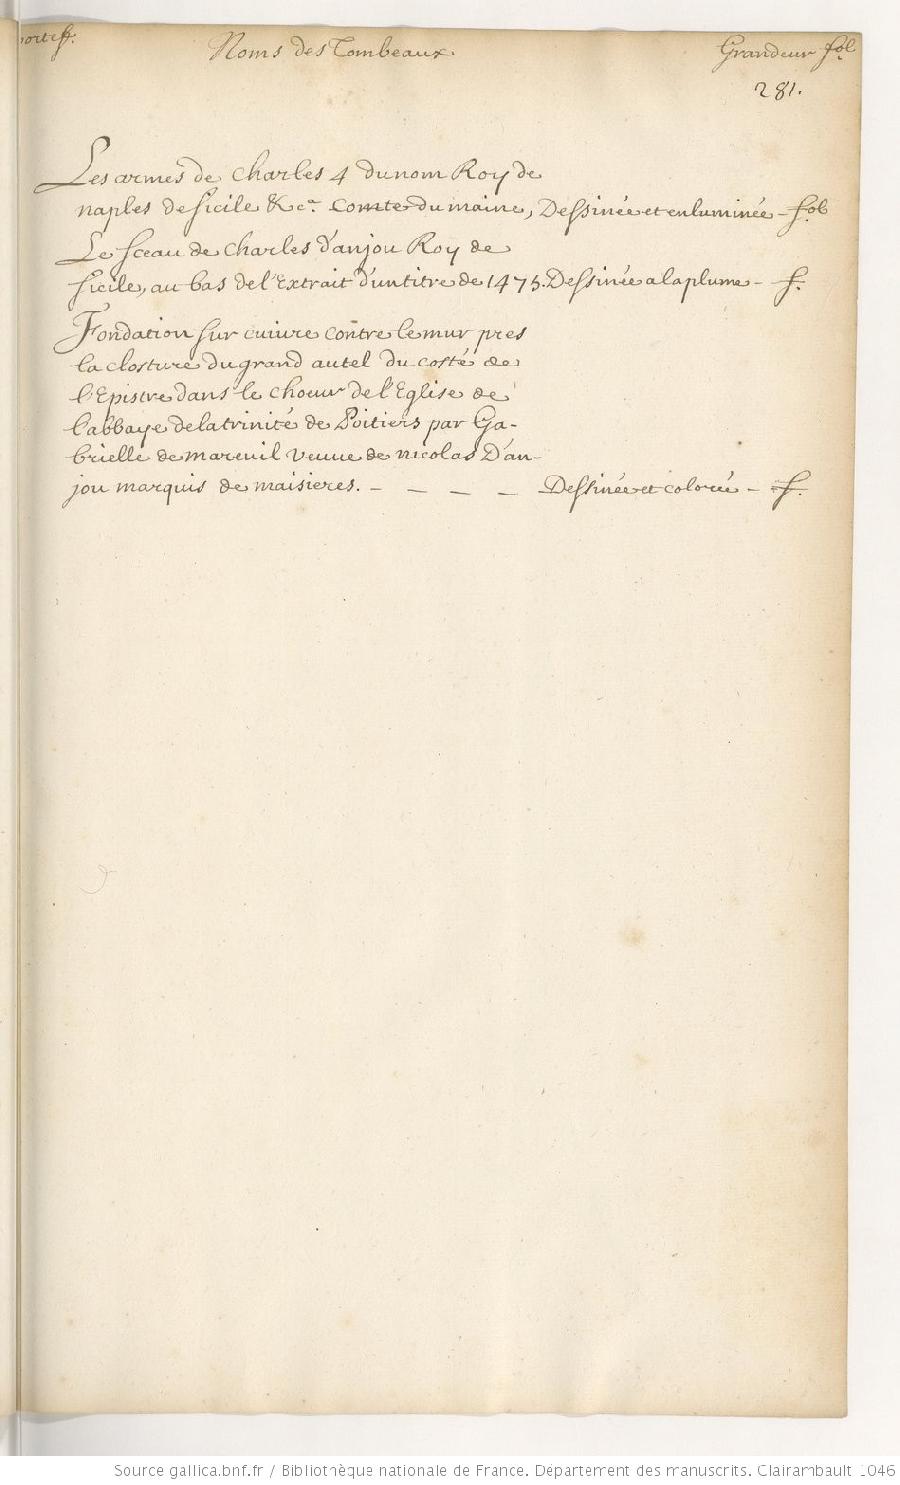 Noms des Tombeaux.
Grandeur fol.
281.
Les armes de Charles 4 du nom Roy de
naples de sicile &ca. Comte du maine, Dessinée et enluminée - fol
Le sceau de Charles d'anjou Roy de
sicile, au bas de l'Extrait d'un titre de 1475. Dessinée a la plume - f.
Fondation sur cuivre contre le mur pres
la closture du grand autel du costé de
l'Epistre dans le choeur de l'Eglise de
l'abbaye de la trinité de Poitiers par Ga-
brielle de mareuil veuve de nicolas D'an-
jou marquis de maisieres. - - - - Dessinée et colorée - f.
Source gallica.bnf.fr / Bibliothèque nationale de France. Département des manuscrits. Clairambault 1046